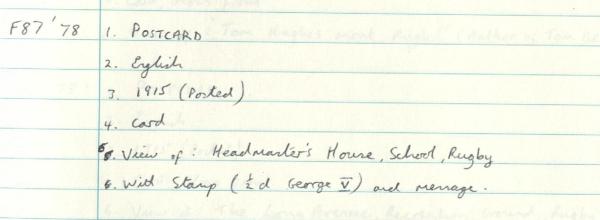 F87'78 1. POSTCARD
2. English
3. 1915 (Posted)
4. Card
5. View of: Headmaster's House, School, Rugby
6. With Stamp (½d George V) and message.